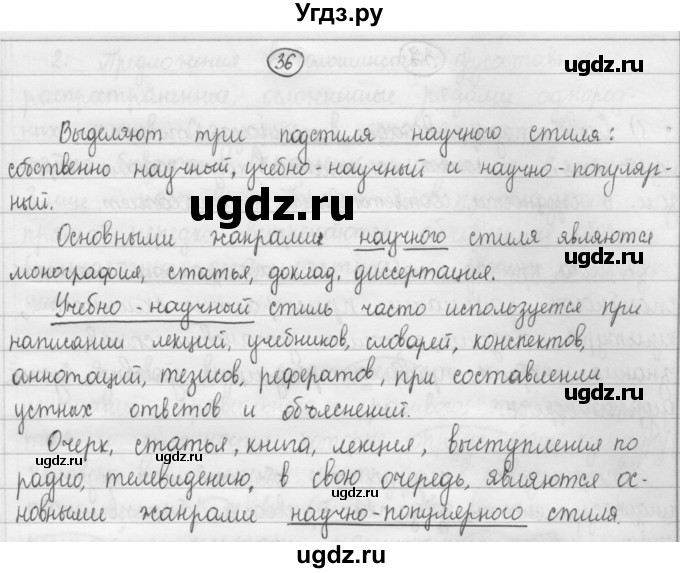 Угдз.ру
36
ugdz.ru
Выделяют три подстиля научного стиля:
собственно научный, учебно-научный и научно-популяр-
ный.
ugdz.ru
Основными жанрами научного стиля являются
монография, статья, доклад, диссертация.
Учебно-научный стиль часто используется при
написании лекций, учебников, словарей, конспектов,
аннотаций, тезисов, рефератов, при составлении
устных ответов и объяснений.
Очерк, статья, книга, лекция, выступления по
ugdz.ru
радио, телевидению, в свою очередь, являются ос-
ugdz.ru
новными жанрами научно-популярного стиля.
ugdz.ru